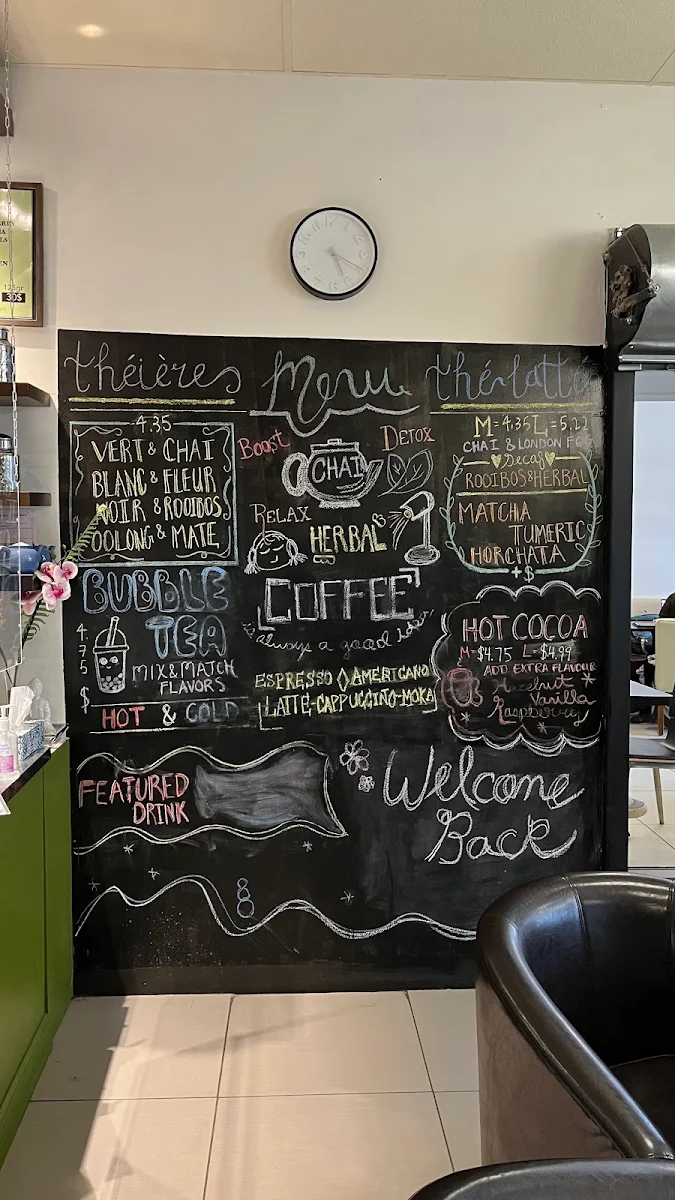 théières
4.35
VERT & CHAI
BLANC & FLEUR
NOIR & ROOIBOS
OOLONG & MATE
BUBBLE
TEA
4.75$
MIX & MATCH
FLAVORS
HOT & COLD
FEATURED
DRINK
Menu
Boost
DETOX
CHAI
RELAX
HERBAL
COFFEE
always a good idea
ESPRESSO AMERICANO
LATTE-CAPPUCCINO-MOKA
Welcome
Back
thé-latte
M=4.35 L=5.22
CHAI & LONDON FOG
Decaf
ROOIBOS & HERBAL
MATCHA
TUMERIC
HORCHATA
+$
HOT COCOA
M=$4.75 L=$4.99
ADD EXTRA FLAVOUR
Hazelnut
Vanilla
Raspberry
125gr
30$